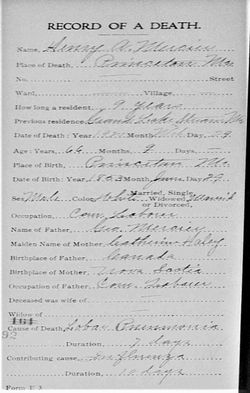 RECORD OF A DEATH.
Name, Henry A. Mercier
Place of Death, Princeton Me.
No. Street
Ward, Village,
How long a resident, 9 years
Previous residence, Grand Lake Stream Me
Date of Death: Year, Month, Day, 29
Age: Years, 66 Months, 9 Days,
Place of Birth, Princeton Me.
Date of Birth: Year, 1863 Month, June Day, 29
Sex Male Color, White Married, Single, Widowed or Divorced, Married
Occupation, Com. Laborer
Name of Father, Geo. Mercier
Maiden Name of Mother, Catherine Haley
Birthplace of Father, Canada
Birthplace of Mother, Nova Scotia
Occupation of Father, Com. Laborer
Deceased was wife of,
Widow of
101
92
Cause of Death, Lobar Pneumonia
Duration, 7 days
Contributing cause, Influenza
Duration, 10 days
Form E 3